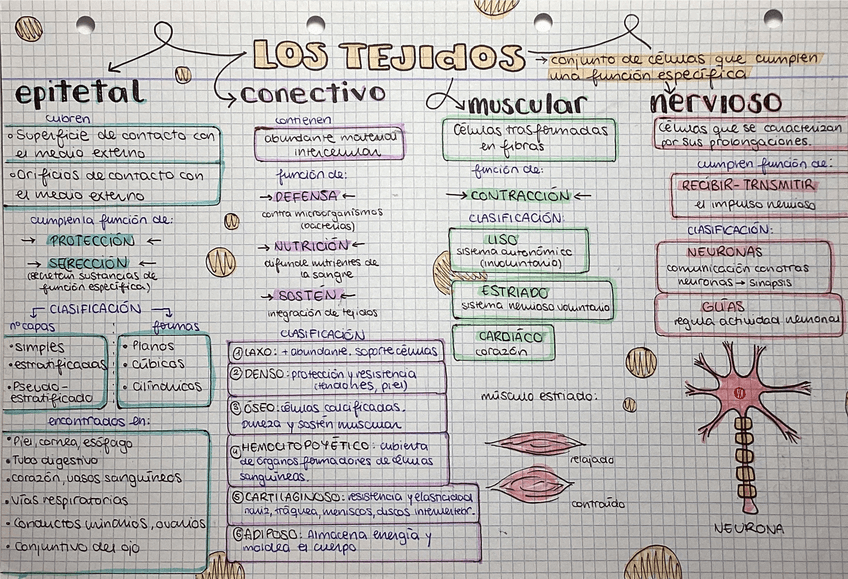 LOS TEJIDOS
conjunto de células que cumplen
una función específica
epitetal
cubren
Superficie de contacto con
el medio externo
Orificios de contacto con
el medio externo
cumplen la función de:
PROTECCIÓN
SERECCIÓN
(secretan sustancias de
función específica)
CLASIFICACIÓN
nºcapas
• simples
• estratificadas
• Pseudo-
estratificado
formas
• Planos
• cúbicas
• Cilíndricos
encontrados en:
• Piel, cornea, esófago
• Tubo digestivo
• corazón, vasos sanguíneos
• Vías respiratorias
• Conductos urinarios, ovarios
• Conjuntivo del ojo
conectivo
contienen
abundante material
intercelular
función de:
DEFENSA
contra microorganismos
(bacterias)
NUTRICIÓN
difunde nutrientes de
la sangre
SOSTÉN
integración de tejidos
CLASIFICACIÓN
① LAXO: + abundante. soporte células
② DENSO: protección y resistencia
(tendones, piel)
③ ÓSEO: células calcificadas.
dureza y sostén muscular
④ HEMOCITOPOYÉTICO: cubierta
de órganos formadores de células
sanguíneas.
⑤ CARTILAGINOSO: resistencia y elasticidad
nariz, tráquea, meniscos, discos intervertebr.
⑥ ADIPOSO: Almacena energía y
moldea el cuerpo
muscular
Células trasformadas
en fibras
función de:
CONTRACCIÓN
CLASIFICACIÓN:
LISO
sistema autonómico
(involuntario)
ESTRIADO
sistema nervioso voluntario
CARDIÁCO
corazón
músculo estriado:
relajado
contraído
nervioso
Células que se caracterizan
por sus prolongaciones.
cumplen función de:
RECIBIR-TRNSMITIR
el impulso nervioso
CLASIFICACIÓN:
NEURONAS
comunicación con otras
neuronas → sinapsis
GLÍAS
regula actividad neuronal
NEURONA